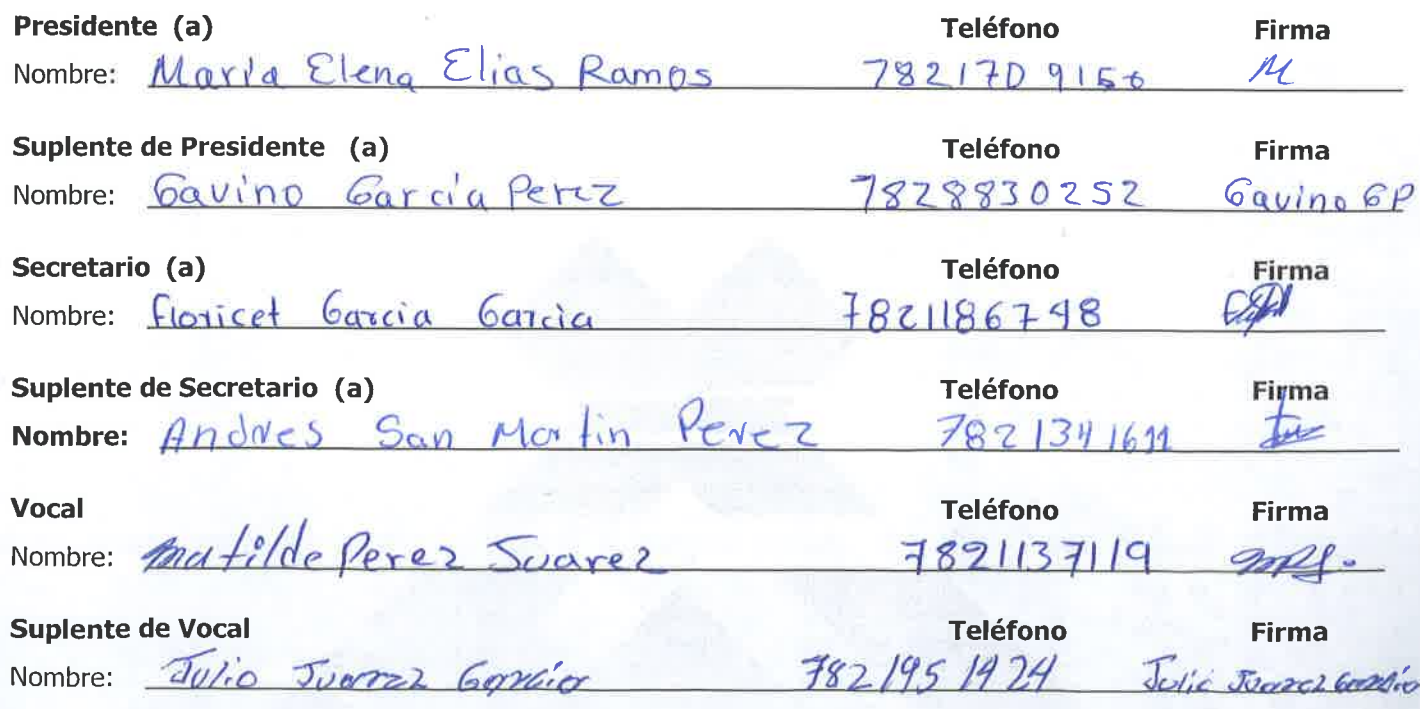 Presidente (a) Teléfono Firma
Nombre: Maria Elena Elias Ramos 782170 9156 M
Suplente de Presidente (a) Teléfono Firma
Nombre: Gavino Garcia Perez 7828830252 Gavino GP
Secretario (a) Teléfono Firma
Nombre: Floricet Garcia Garcia 7821186748
Suplente de Secretario (a) Teléfono Firma
Nombre: Andres San Martin Perez 7821341611
Vocal Teléfono Firma
Nombre: Matilde Perez Suarez 7821137119
Suplente de Vocal Teléfono Firma
Nombre: Julio Juarez Garcia 782 195 1424 Julio Juarez Garcia